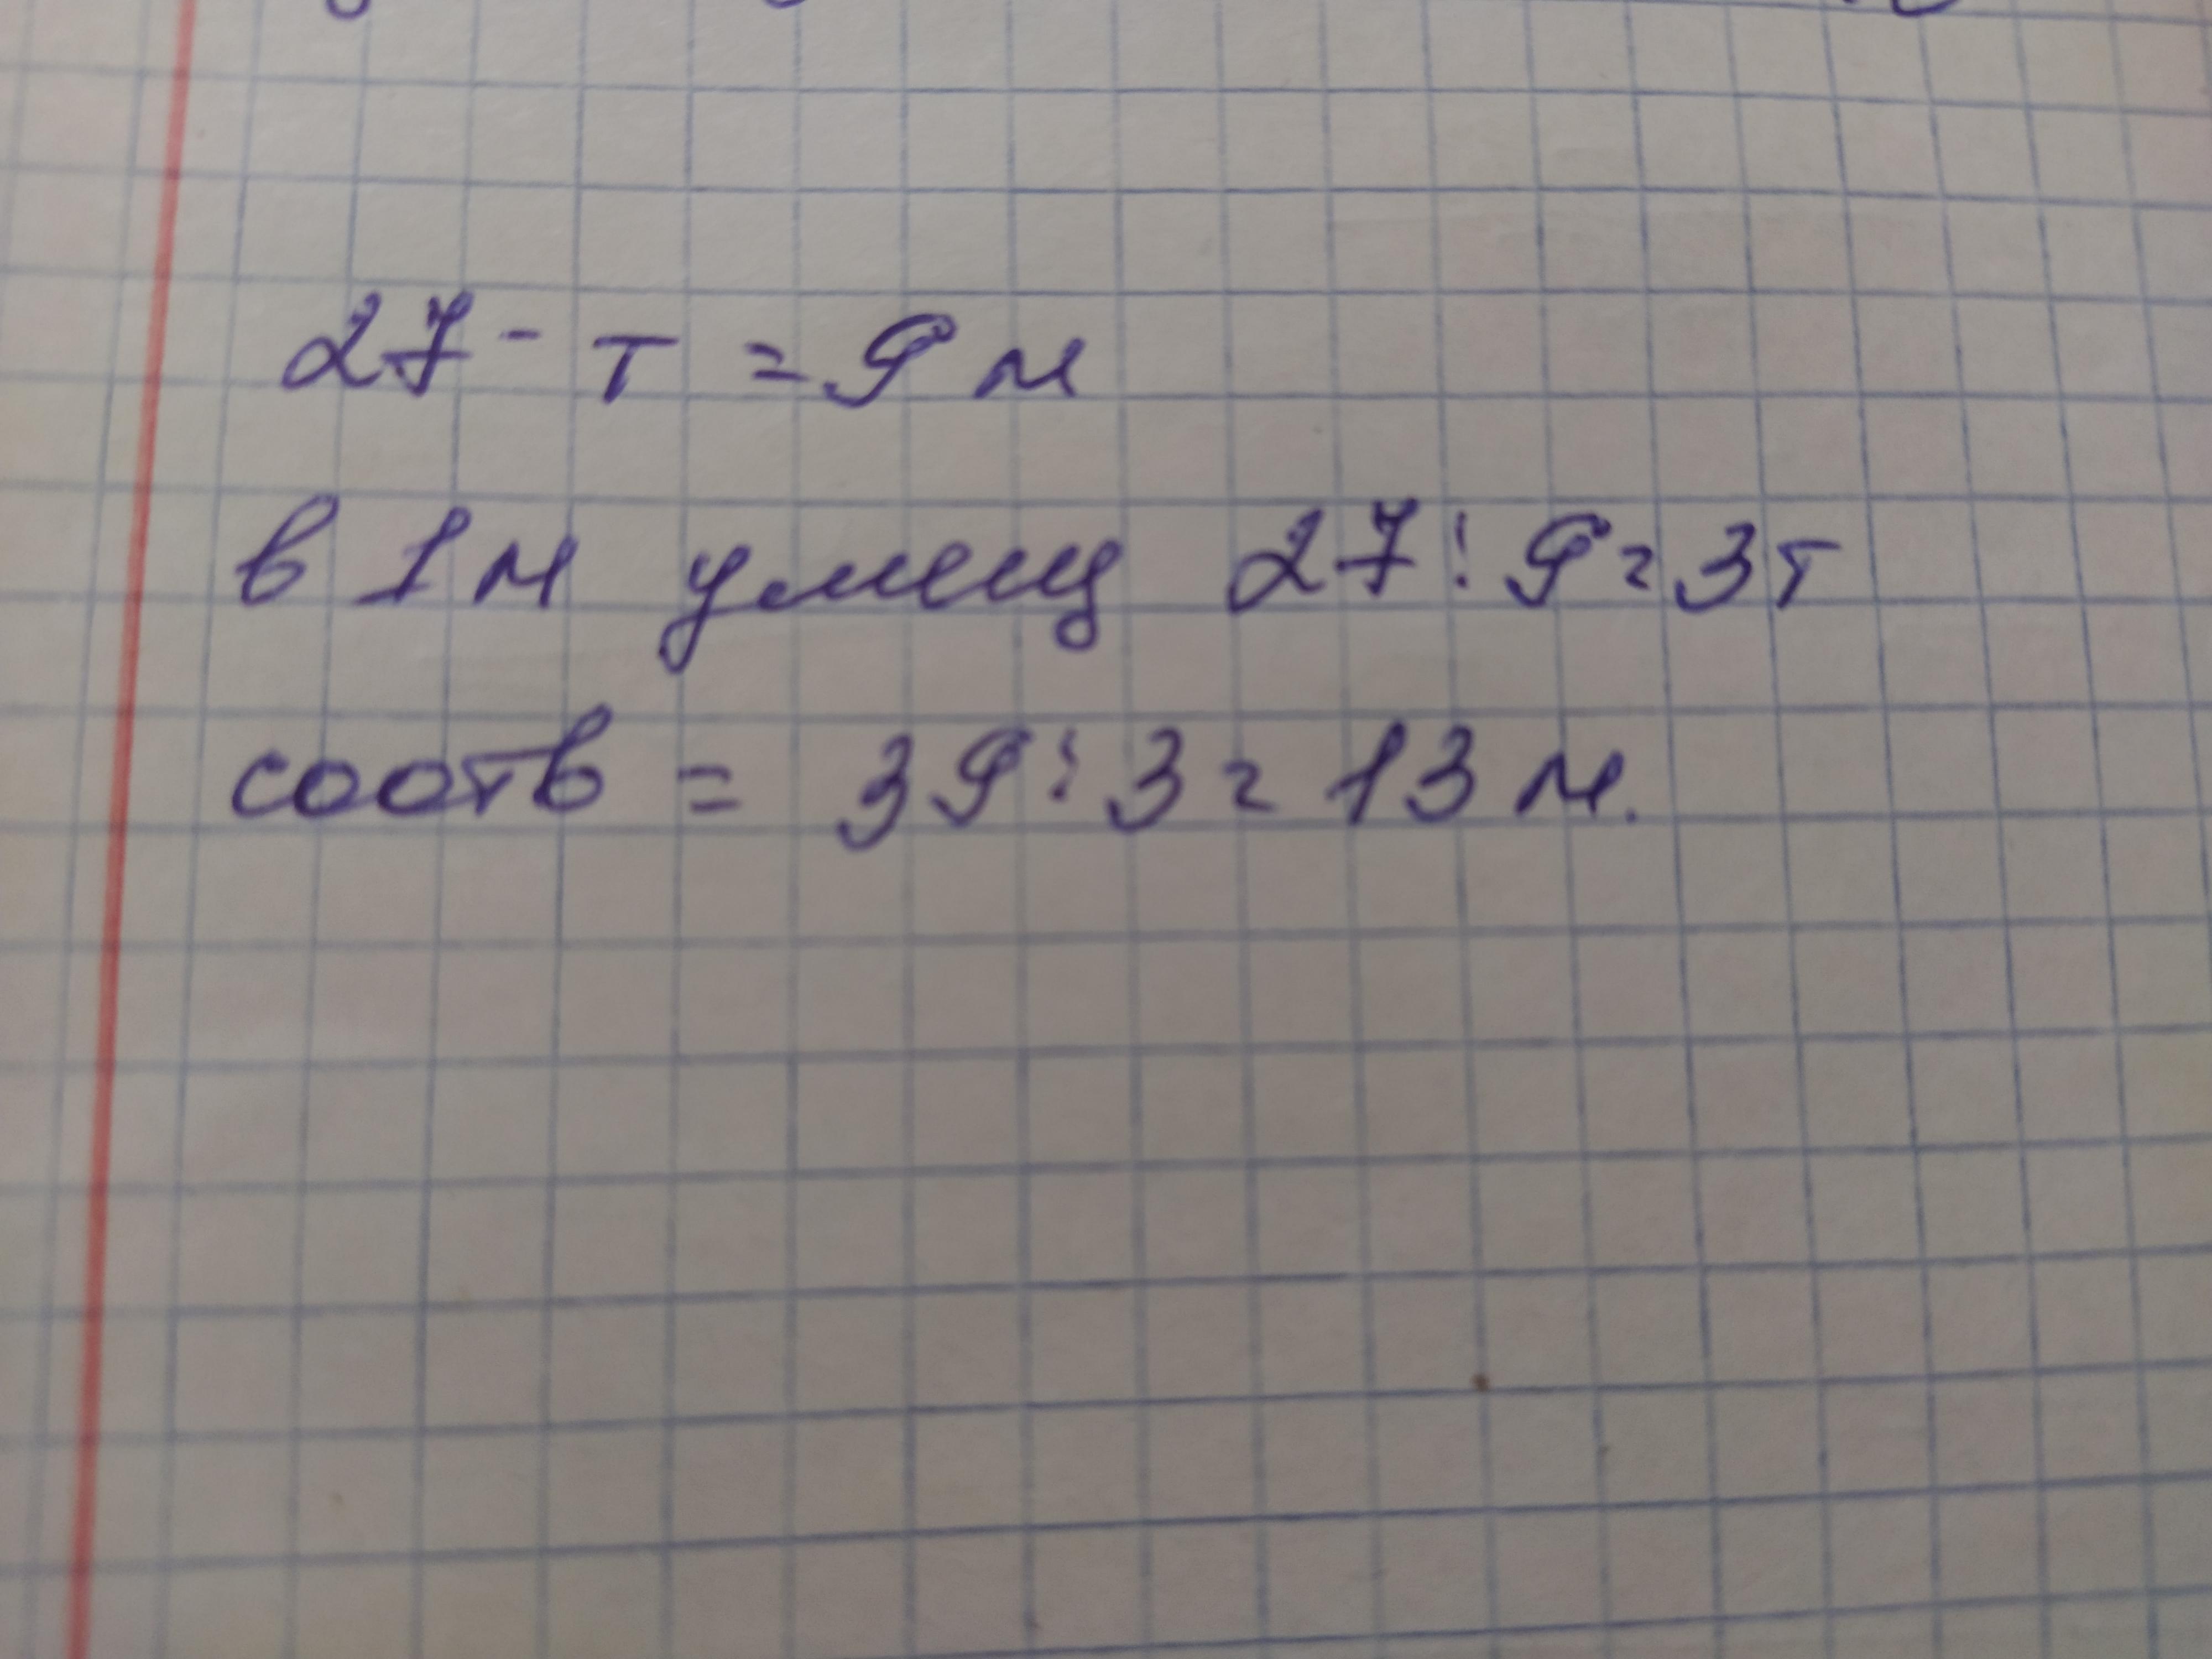 27 - т = 9 м
в 1 м умещ 27 : 9 = 3 т
соотв = 39 : 3 = 13 м.